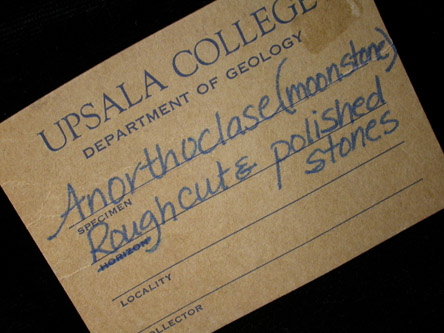 UPSALA COLLEGE
DEPARTMENT OF GEOLOGY
Anorthoclase (moonstone)
SPECIMEN
Rough cut & polished
stones
HORIZON
LOCALITY
COLLECTOR